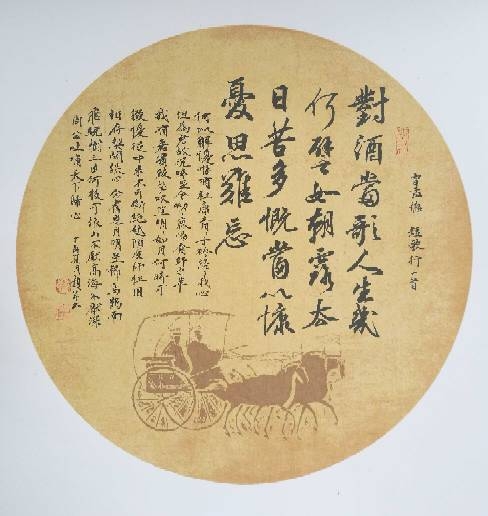 對酒當歌人生幾
何譬如朝露去
日苦多慨當以慷
憂思難忘
曹孟德 短歌行一首
何以解憂惟有杜康青青子衿悠悠我心
但為君故沉吟至今呦呦鹿鳴食野之苹
我有嘉賓鼓瑟吹笙明明如月何時可
掇憂從中來不可斷絕越陌度阡枉用
相存契闊談心念舊恩月明星稀烏鵲南
飛繞樹三匝何枝可依山不厭高海不厭深
周公吐哺天下歸心